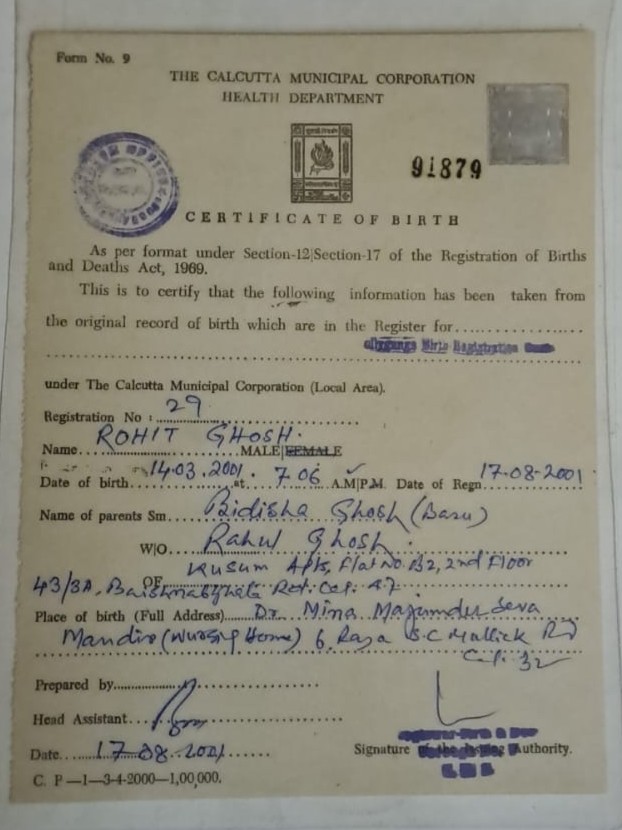 Form No. 9
THE CALCUTTA MUNICIPAL CORPORATION
HEALTH DEPARTMENT
91879
CERTIFICATE OF BIRTH
As per format under Section-12|Section-17 of the Registration of Births
and Deaths Act, 1969.
This is to certify that the following information has been taken from
the original record of birth which are in the Register for
Birth Registration
under The Calcutta Municipal Corporation (Local Area).
Registration No : 29
Name ROHIT GHOSH. MALE|FEMALE
Date of birth 14.03.2001. at 7.06 A.M|P.M. Date of Regn 17-08-2001
Name of parents Sm. Bidisha Ghosh (Basu)
W|O Rahul Ghosh.
Kusum Apts, Flat No B2, 2nd Floor
OF
43/3A, Rd. Cal. 47
Place of birth (Full Address) Dr. Mina Majumder Seva
Mandir (Nursing Home) 6, Raja S.C Mallick Rd
Cal. 32
Prepared by
Head Assistant
Date 17.08.2001
Signature of the Issuing Authority.
C. P—1—3-4-2000—1,00,000.